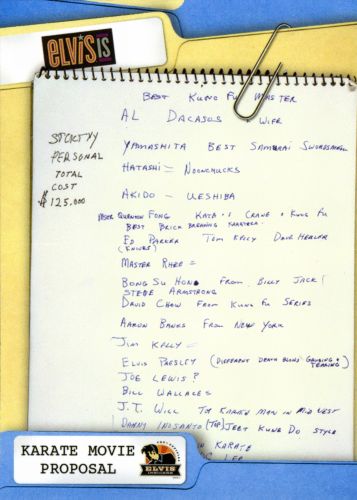 ELVIS IS
BEST KUNG FU MASTER
AL DACASOS & WIFE
STRICTLY
PERSONAL
TOTAL
COST
$125,000
YAMASHITA BEST SAMURAI SWORDSMAN
HATASHI = NOONCHUCKS
AKIDO - UESHIBA
QUENTON FONG KATA'S CRANE & KUNG FU
BEST BRICK BREAKING KARATECA
ED PARKER TOM KELLY DAVE HEBLER
(KNIVES)
MASTER RHEE =
BONG SU HON FROM BILLY JACK
STEVE ARMSTRONG
DAVID CHOW FROM KUNG FU SERIES
AARON BANKS FROM NEW YORK
JIM KELLY =
ELVIS PRESLEY (DIFFERENT DEATH BLOWS GOUGING & TEARING)
JOE LEWIS?
BILL WALLACE =
J.T. WILL TOP KARATE MAN IN MID WEST
DANNY INOSANTO (TOP) JEET KUNE DO STYLE
KARATE
LEE
KARATE MOVIE
PROPOSAL
ELVIS